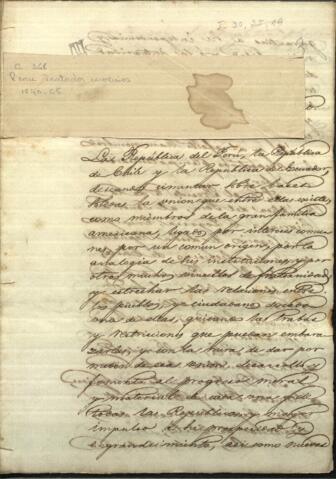 C 346
Peru Tratados
La República del Perú, la República
de Chile y la República del Ecuador,
deseando cimentar sobre bases
sólidas la union que entre ellas existe,
como miembros de la gran familia
americana, ligadas por intereses comu-
nes, por un comun origen, por la
analogia de sus instituciones, y por
otros muchos vinculos de fraternidad,
y estrechar las relaciones entre
los pueblos y ciudadanos de cada
una de ellas, quitando las trabas
y restricciones que puedan emba-
razarlas, y con la mira de dar por
medio de esa union, desarrollo y
fomento al progreso moral
y material de cada una y de
todas las Repúblicas, y mayor
impulso a su prosperidad y
engrandecimiento, asi como nuevas